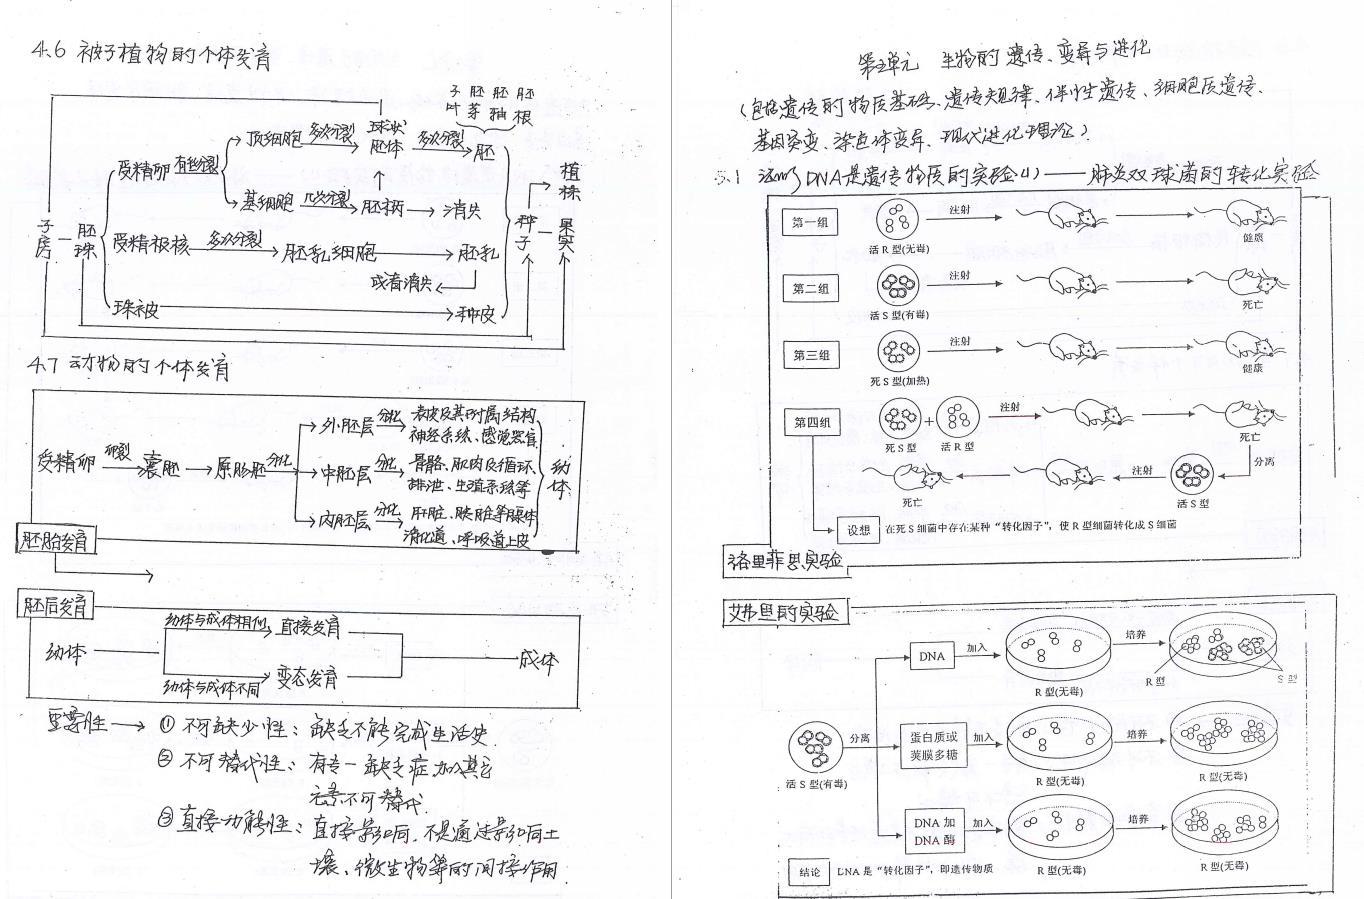 4.6 被子植物的个体发育
子 胚 胚 胚
叶 芽 轴 根
顶细胞 多次分裂 球状胚体 多次分裂 胚
受精卵 有丝分裂
基细胞 几次分裂 胚柄 消失
子房 胚珠
受精极核 多次分裂 胚乳细胞 胚乳
或者消失
珠被 种皮
种子 果实 植株
4.7 动物的个体发育
受精卵 卵裂 囊胚 原肠胚 分化
外胚层 分化 表皮及其附属结构
神经系统、感觉器官
中胚层 分化 骨骼、肌肉及循环、
排泄、生殖系统等
内胚层 分化 肝脏、胰脏等腺体
消化道、呼吸道上皮
幼体
胚胎发育
胚后发育
幼体与成体相似 直接发育
幼体 成体
幼体与成体不同 变态发育
重要性 ① 不可缺少性：缺乏不能完成生活史
② 不可替代性：有专一缺乏症,加入其它
元素不可替代
③ 直接功能性：直接影响，不是通过影响土
壤、微生物等的间接作用.
第五单元 生物的遗传、变异与进化
(包括遗传的物质基础、遗传规律、伴性遗传、细胞质遗传、
基因突变、染色体变异、现代进化理论)
5.1 证明DNA是遗传物质的实验(1)——肺炎双球菌的转化实验
第一组 注射
活 R 型(无毒) 健康
第二组 注射
活 S 型(有毒) 死亡
第三组 注射
死 S 型(加热) 健康
第四组 + 注射
死 S 型 活 R 型 死亡
分离
注射
死亡 活 S 型
设想 在死 S 细菌中存在某种“转化因子”，使 R 型细菌转化成 S 细菌
格里菲思实验
艾弗里的实验
DNA 加入 培养
R 型(无毒) R 型 S 型
分离 蛋白质或荚膜多糖 加入 培养
活 S 型(有毒) R 型(无毒) R 型(无毒)
DNA 加 DNA 酶 加入 培养
R 型(无毒) R 型(无毒)
结论 DNA 是“转化因子”，即遗传物质